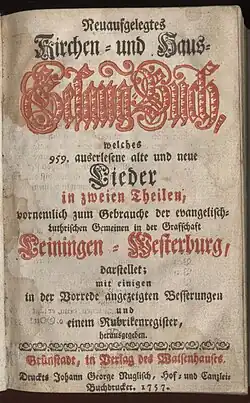 Neuaufgelegtes
Kirchen- und Haus-
Gesang-Buch,
welches
959. auserlesene alte und neue
Lieder
in zweien Theilen,
vornemlich zum Gebrauche der evangelisch-
lutherischen Gemeinen in der Graffschaft
Leiningen-Westerburg,
darstellet;
mit einigen
in der Vorrede angezeigten Besserungen
und
einem Rubrikenregister,
herausgegeben.
Grünstadt, in Verlag des Waisenhauses.
Druckts Johann George Nuglisch, Hof- und Canzlei-
Buchdrucker. 1757.